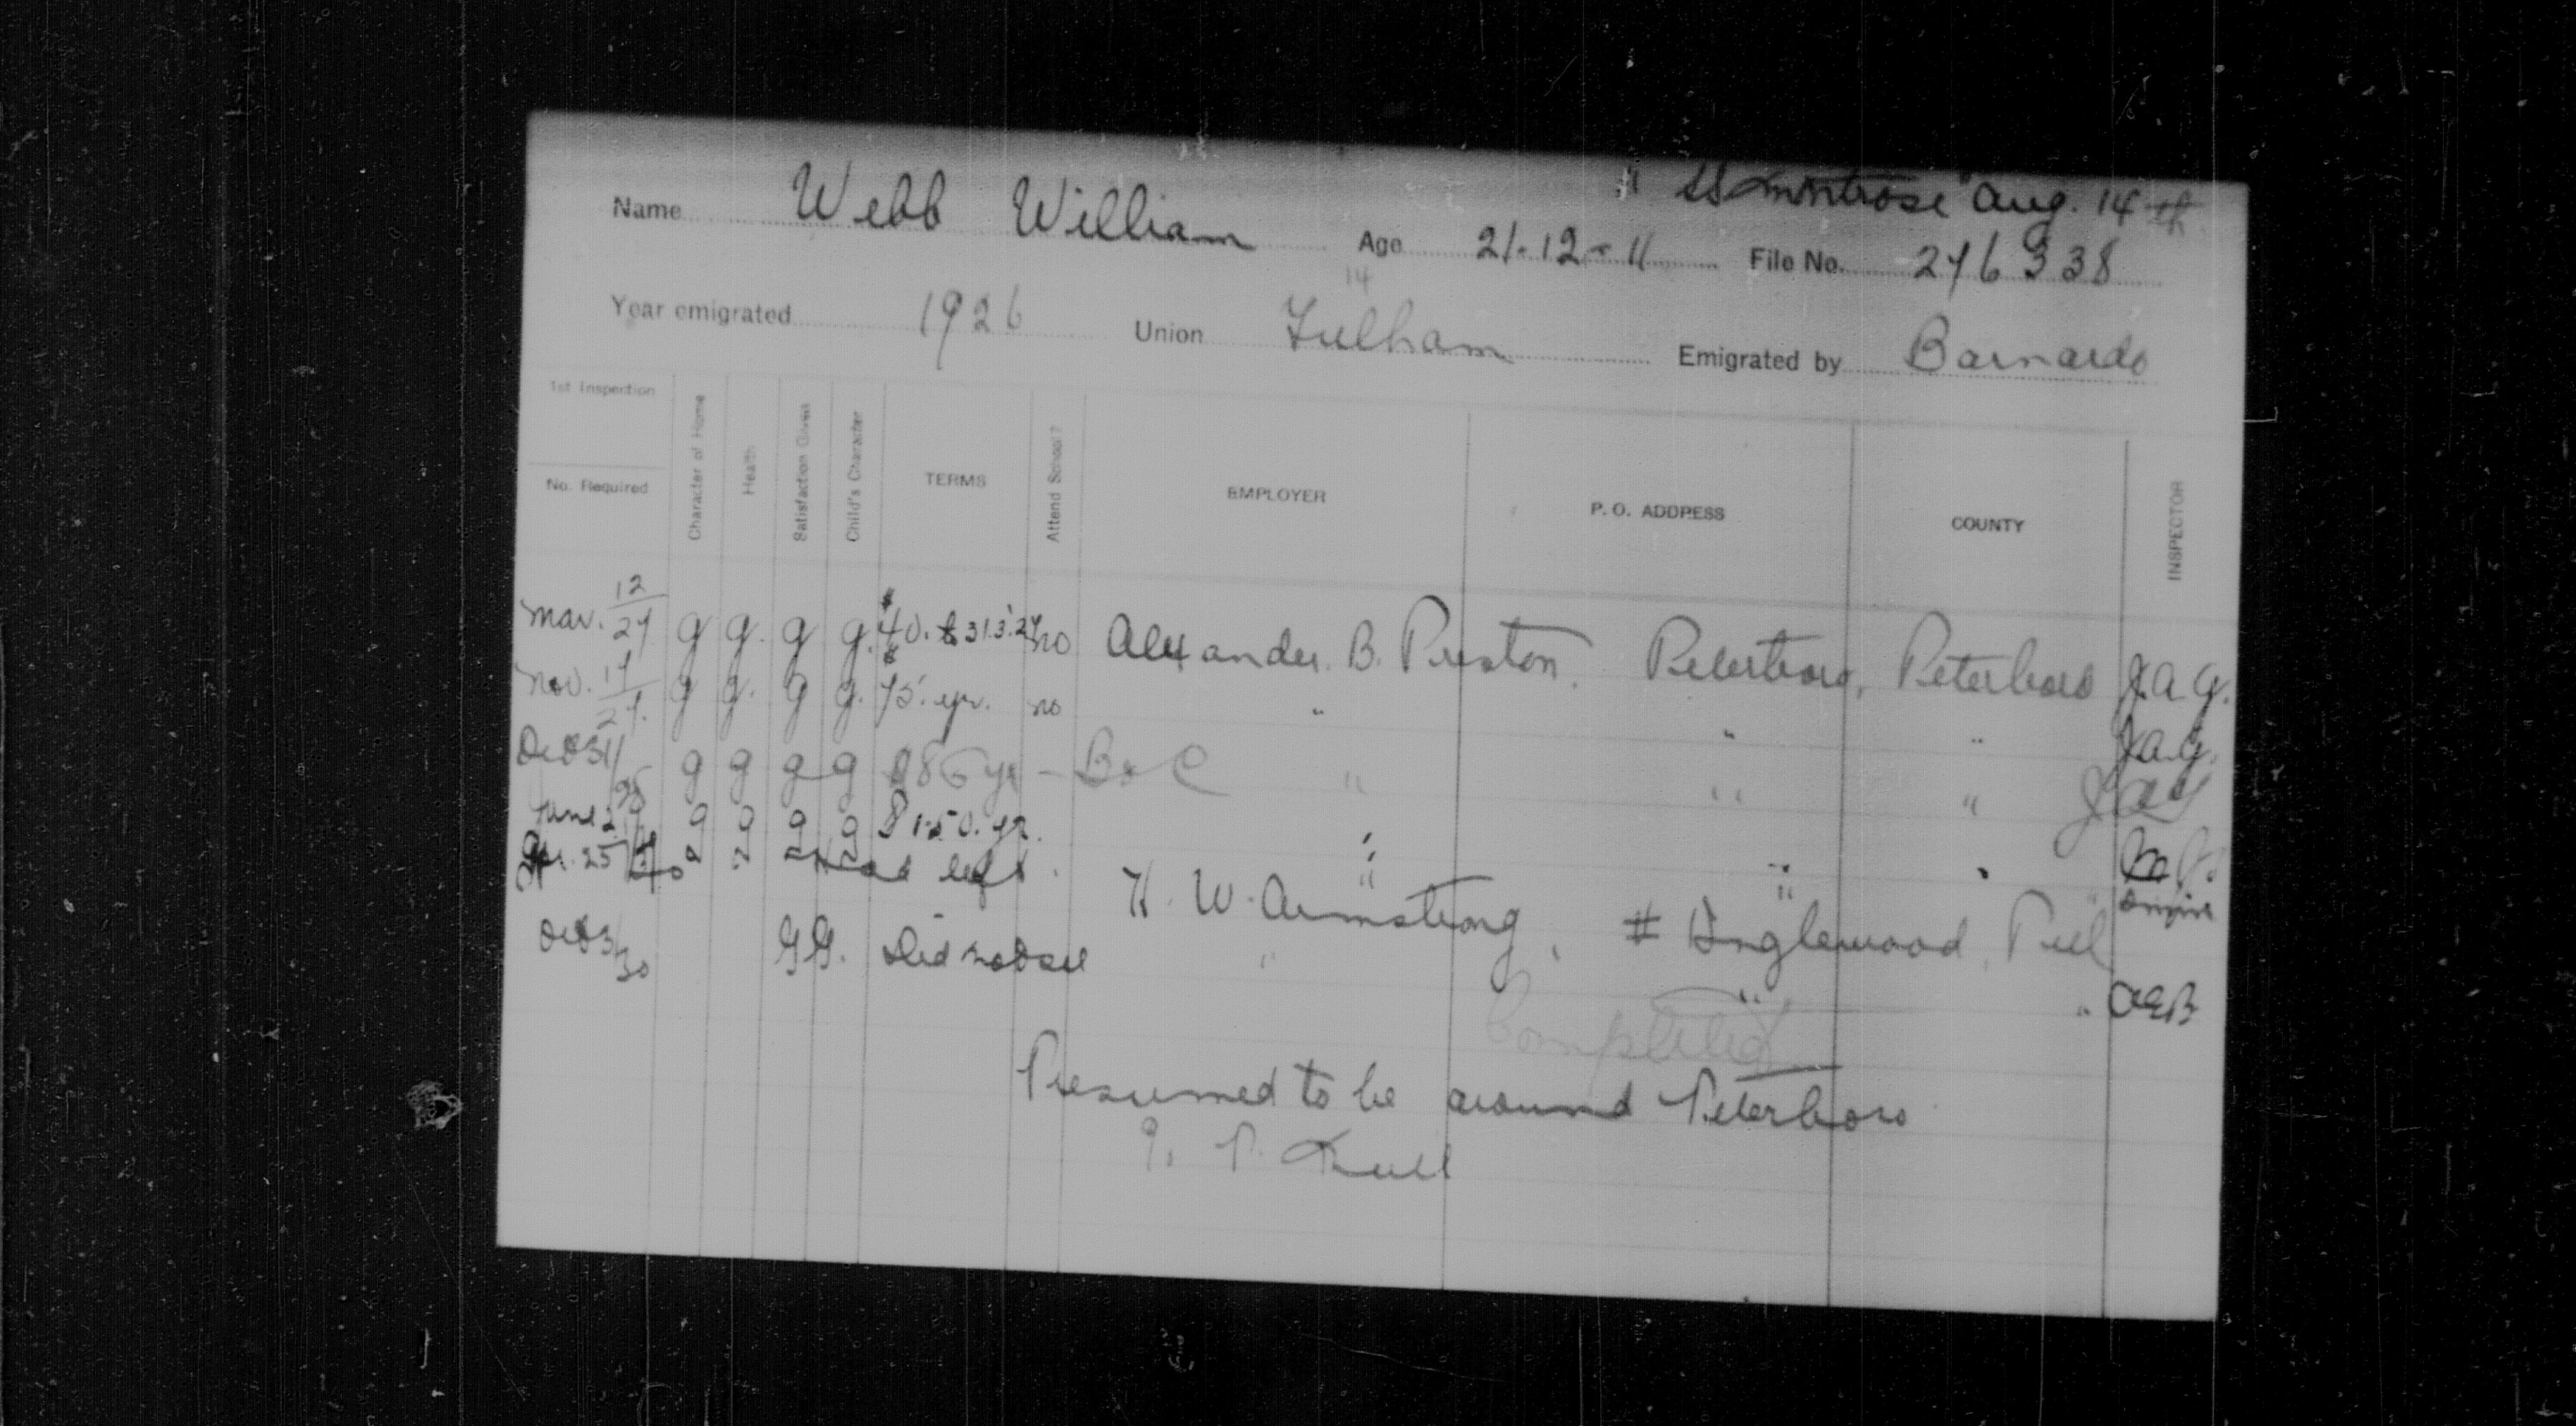 "SS Montrose" Aug. 14th
Name Webb William Age 21-12-11 File No. 276338
14
Year emigrated 1926 Union Fulham Emigrated by Barnardo
1st Inspection
No. Required Character of Home Health Satisfaction Given Child's Character TERMS Attend School? EMPLOYER P. O. ADDRESS COUNTY INSPECTOR
Mar. 12/27 g g. g g. $40. to 31.3.27 no Alexander B. Preston. Peterboro, Peterboro J.A.G.
Nov. 17/27. g g. g g. $75. yr. no " " " J.A.G.
g g g g 86 yr - B & C " " "
June 2 g g g g $150. yr. " " "
Apr. 25/30 Had left. " " "
H. W. Armstrong, # Inglewood, Peel
Oct 3/30 G G. Did not see " " " OEB
Completed
Presumed to be around Peterboro